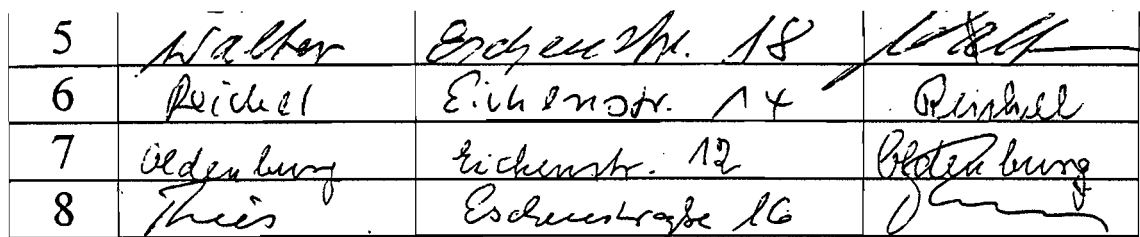 5 Walter Eschenstr. 18 Walter
6 Reichel Eichenstr. 14 Reichel
7 Oldenburg Eichenstr. 12 Oldenburg
8 Thies Eschenstraße 16